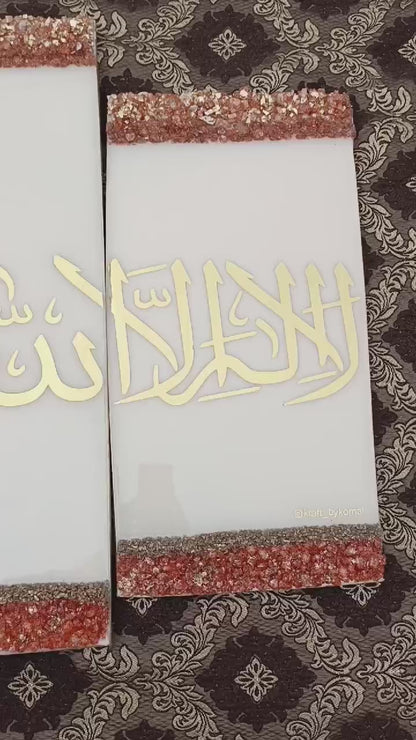 لا اله الا
@kraft_bykomal